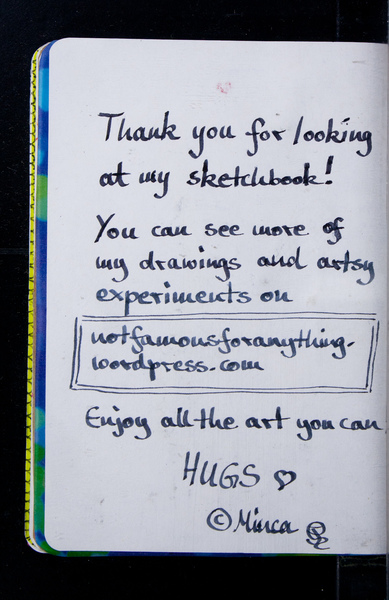 Thank you for looking
at my sketchbook!
You can see more of
my drawings and artsy
experiments on
notfamousforanything.
wordpress.com
Enjoy all the art you can
HUGS ♡
© Minca